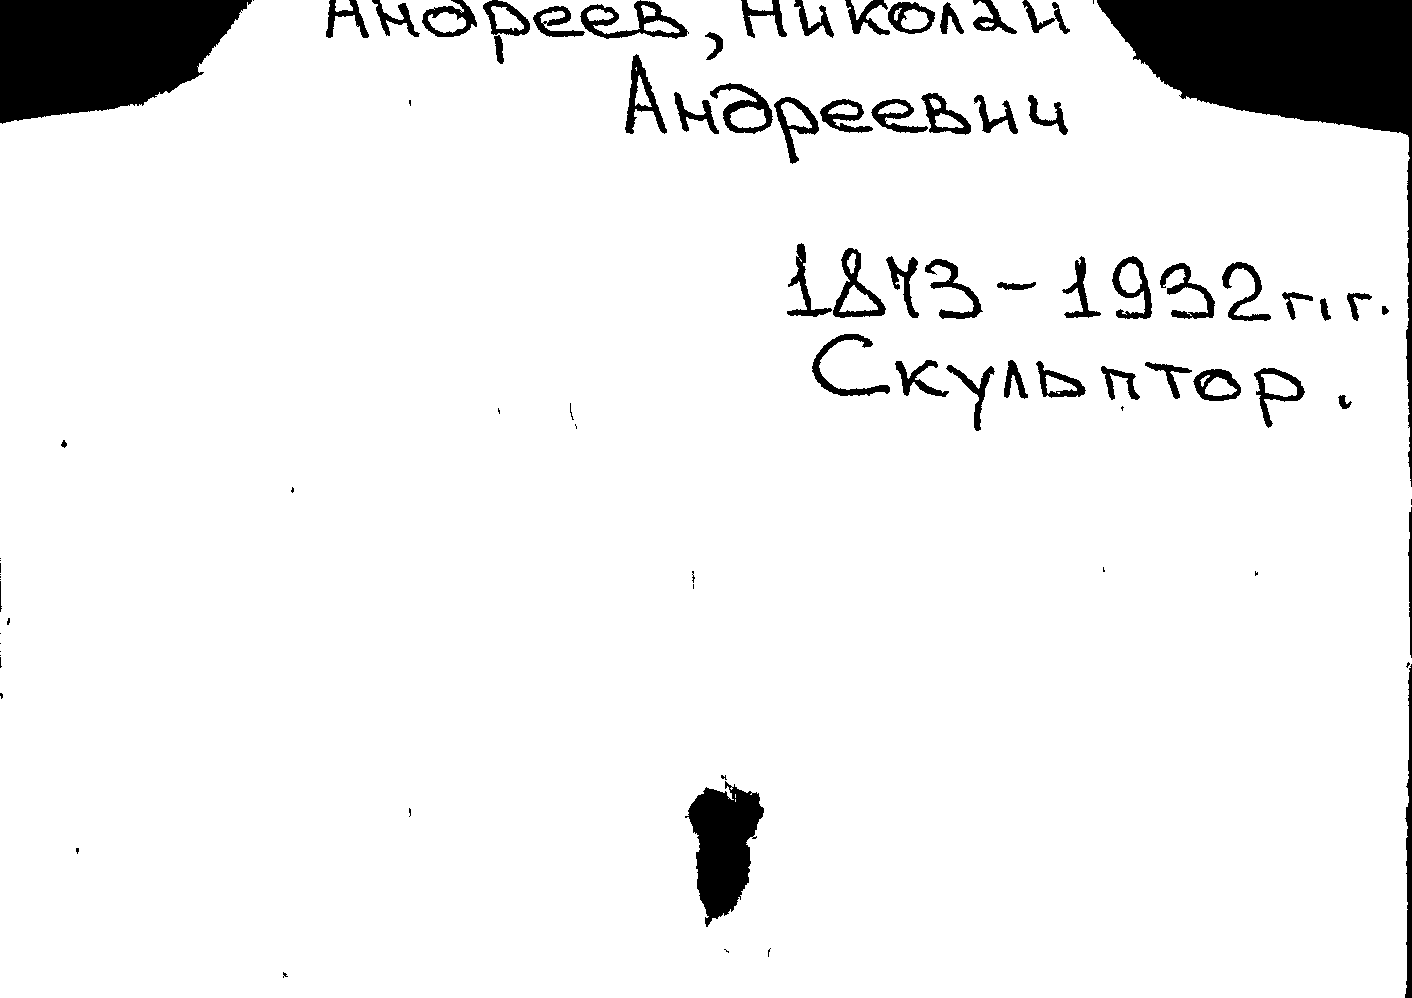 Андреев, Николай
Андреевич
1873-1932 г.г.
Скульптор.